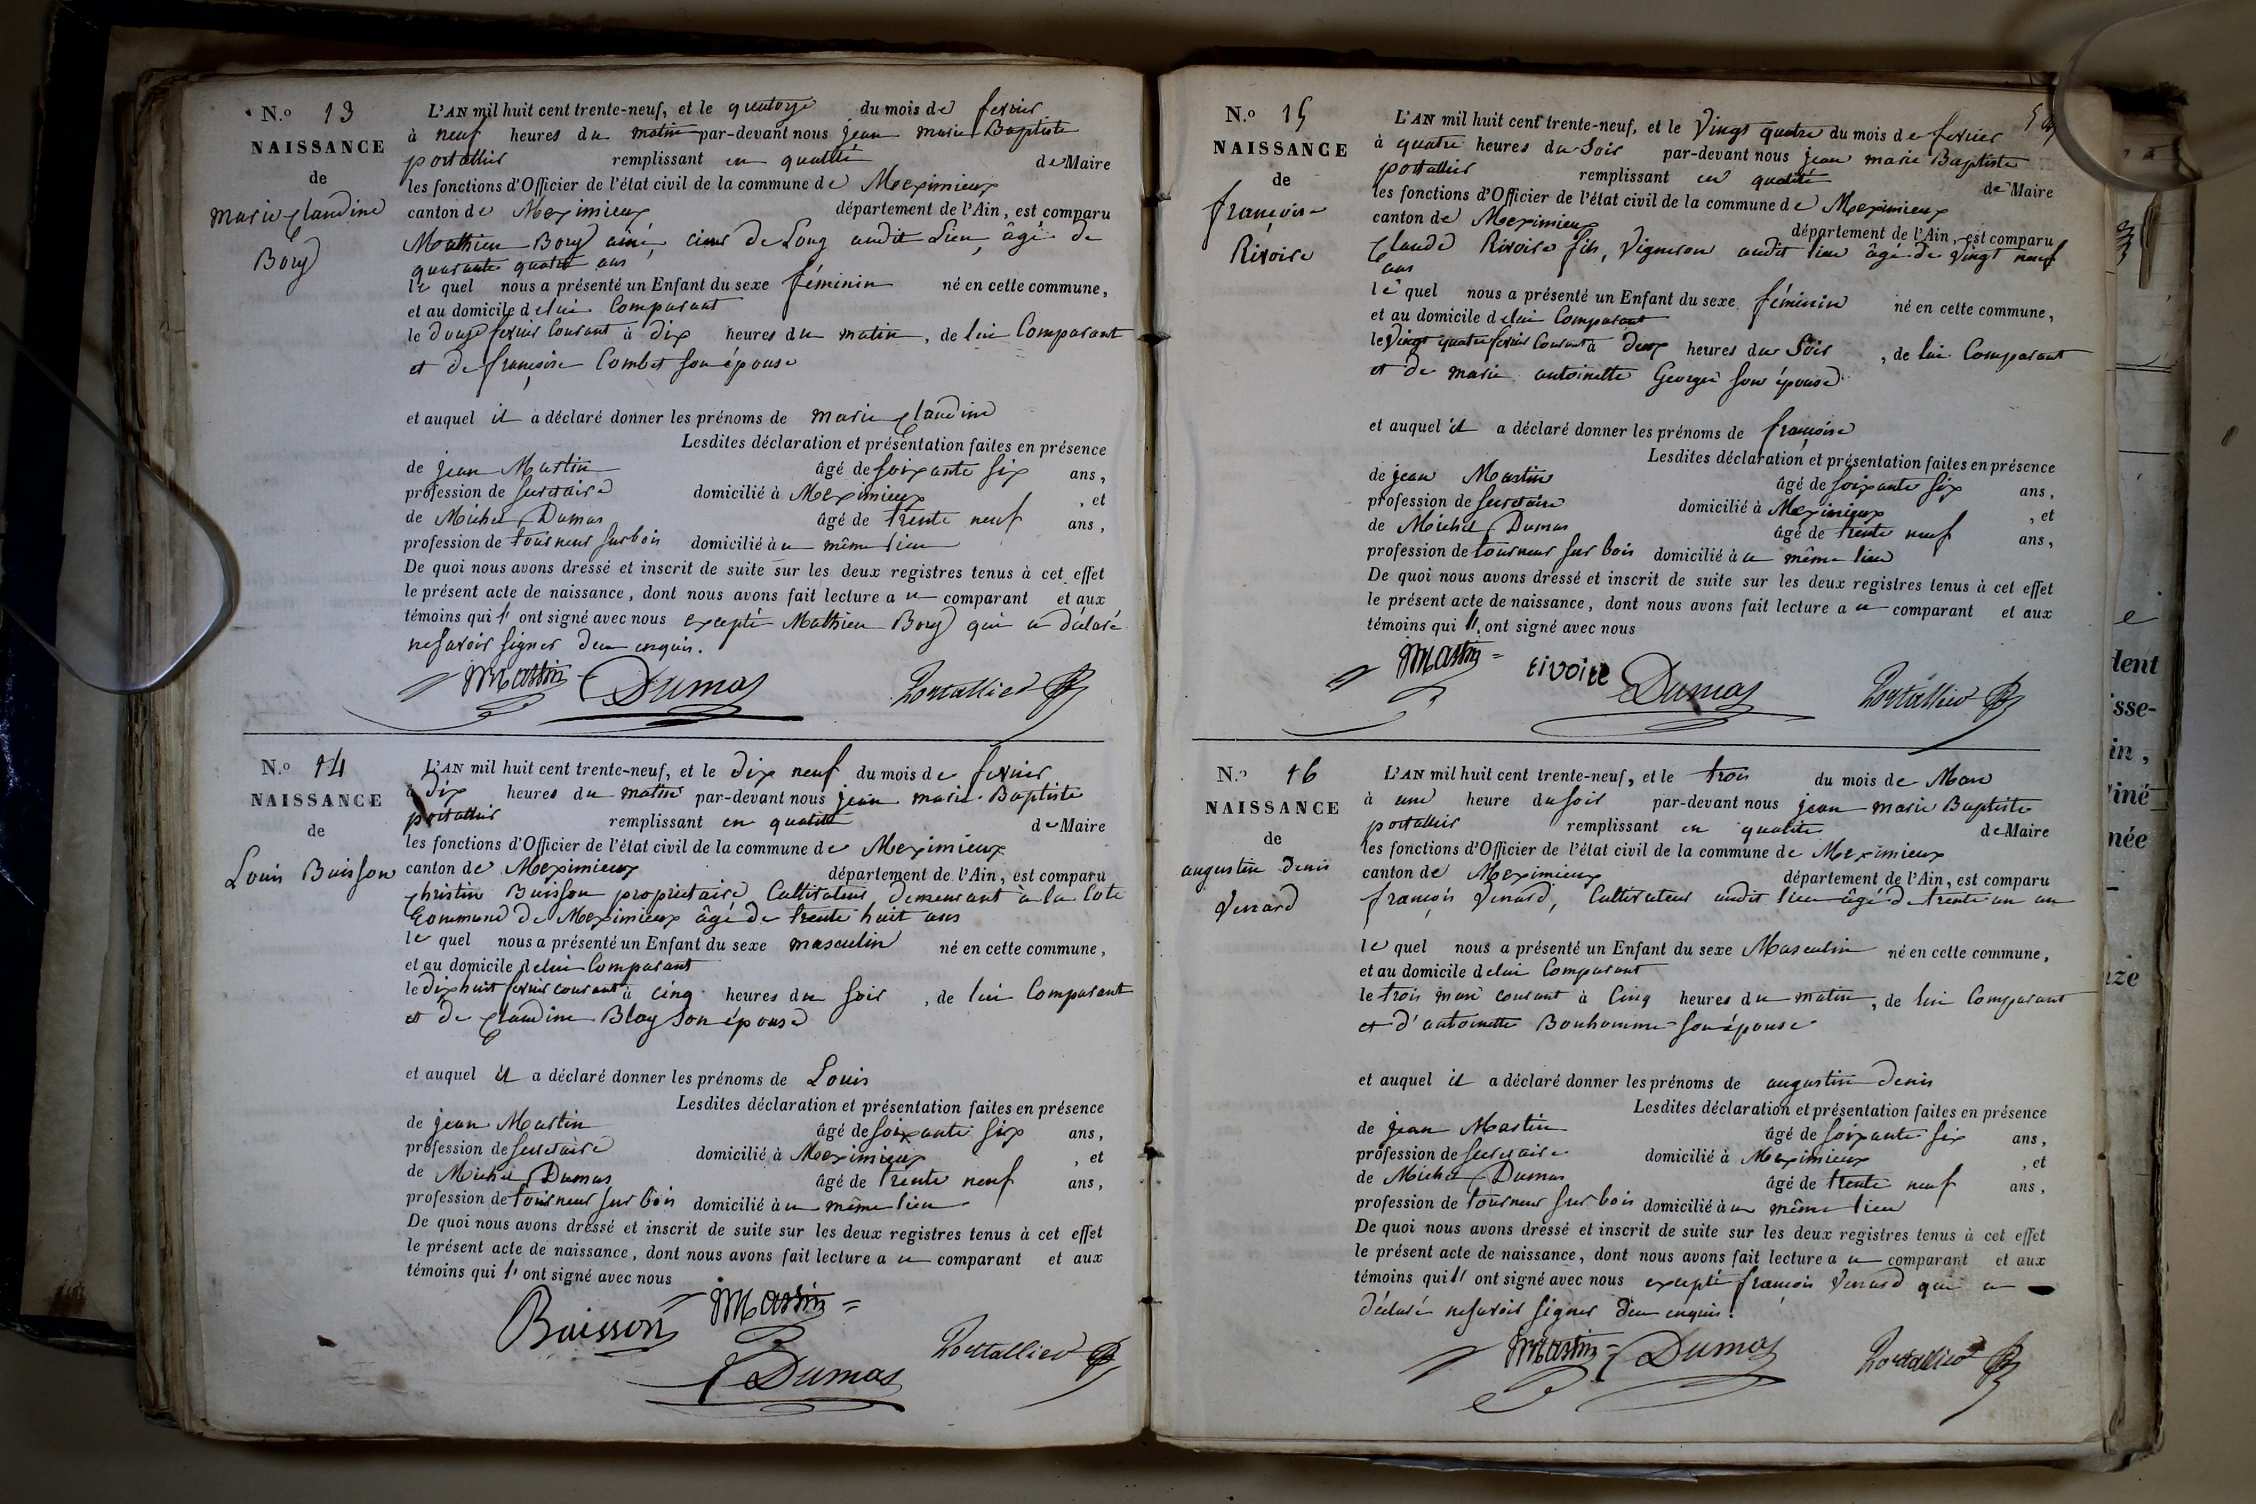 N.o 13
NAISSANCE
de
marie claudine
Bory
L'AN mil huit cent trente-neuf, et le quatorze du mois de fevrier
à neuf heures du matin par-devant nous jean marie Baptiste
portallier remplissant en qualité de Maire
les fonctions d'Officier de l'état civil de la commune de Meximieux
canton de Meximieux département de l'Ain, est comparu
Mathieu Bory ainé, de Long audit Lieu, âgé de
quarante quatre ans
le quel nous a présenté un Enfant du sexe féminin né en cette commune,
et au domicile de lui Comparant
le douze fevrier Courant à dix heures du matin, de lui Comparant
et de françoise Combet son épouse
et auquel il a déclaré donner les prénoms de marie claudine
Lesdites déclaration et présentation faites en présence
de jean Martin âgé de soixante six ans,
profession de secretaire domicilié à Meximieux, et
de Michel Dumas âgé de trente neuf ans,
profession de tourneur sur bois domicilié à u même lieu
De quoi nous avons dressé et inscrit de suite sur les deux registres tenus à cet effet
le présent acte de naissance, dont nous avons fait lecture a u comparant et aux
témoins qui l' ont signé avec nous excepté Mathieu Bory qui a déclaré
ne savoir signer de ce enquis.
Martin Dumas Portallier
N.o 14
NAISSANCE
de
Louis Buisson
L'AN mil huit cent trente-neuf, et le dix neuf du mois de fevrier
à dix heures du matin par-devant nous jean marie Baptiste
portallier remplissant en qualité de Maire
les fonctions d'Officier de l'état civil de la commune de Meximieux
canton de Meximieux département de l'Ain, est comparu
christin Buisson proprietaire Cultivateur demeurant à la Cote
Commune de Meximieux âgé de trente huit ans
le quel nous a présenté un Enfant du sexe masculin né en cette commune,
et au domicile de lui Comparant
le dix huit fevrier courant à cinq heures du soir, de lui Comparant
et de claudine Blay son épouse
et auquel il a déclaré donner les prénoms de Louis
Lesdites déclaration et présentation faites en présence
de jean Martin âgé de soixante six ans,
profession de secretaire domicilié à Meximieux, et
de Michel Dumas âgé de trente neuf ans,
profession de tourneur sur bois domicilié à u même lieu
De quoi nous avons dressé et inscrit de suite sur les deux registres tenus à cet effet
le présent acte de naissance, dont nous avons fait lecture a u comparant et aux
témoins qui l' ont signé avec nous
Buisson Martin
Dumas Portallier
N.o 15
NAISSANCE
de
françoise
Rivoire
L'AN mil huit cent trente-neuf, et le Vingt quatre du mois de fevrier
à quatre heures du Soir par-devant nous jean marie Baptiste
portallier remplissant en qualité de Maire
les fonctions d'Officier de l'état civil de la commune de Meximieux
canton de Meximieux département de l'Ain, est comparu
Claude Rivoire fils, Vigneron audit lieu âgé de Vingt neuf
ans
le quel nous a présenté un Enfant du sexe féminin né en cette commune,
et au domicile de lui Comparant
le Vingt quatre fevrier Courant à deux heures du Soir, de lui Comparant
et de marie antoinette Georges son épouse
et auquel il a déclaré donner les prénoms de françoise
Lesdites déclaration et présentation faites en présence
de jean Martin âgé de soixante six ans,
profession de secretaire domicilié à Meximieux, et
de Michel Dumas âgé de trente neuf ans,
profession de tourneur sur bois domicilié à u même lieu
De quoi nous avons dressé et inscrit de suite sur les deux registres tenus à cet effet
le présent acte de naissance, dont nous avons fait lecture a u comparant et aux
témoins qui l' ont signé avec nous
Martin rivoire Dumas Portallier
N.o 16
NAISSANCE
de
augustin Denis
Venard
L'AN mil huit cent trente-neuf, et le trois du mois de Mars
à une heure du soir par-devant nous jean marie Baptiste
portallier remplissant en qualité de Maire
les fonctions d'Officier de l'état civil de la commune de Meximieux
canton de Meximieux département de l'Ain, est comparu
françois Venard, Cultivateur audit lieu âgé de trente un an
le quel nous a présenté un Enfant du sexe Masculin né en cette commune,
et au domicile de lui Comparant
le trois mars courant à Cinq heures du matin, de lui Comparant
et d'antoinette Bonhomme son épouse
et auquel il a déclaré donner les prénoms de augustin denis
Lesdites déclaration et présentation faites en présence
de jean Martin âgé de soixante six ans,
profession de secretaire domicilié à Meximieux, et
de Michel Dumas âgé de trente neuf ans,
profession de tourneur sur bois domicilié à u même lieu
De quoi nous avons dressé et inscrit de suite sur les deux registres tenus à cet effet
le présent acte de naissance, dont nous avons fait lecture a u comparant et aux
témoins qui l' ont signé avec nous excepté françois Venard qui a
déclaré ne savoir signer de ce enquis.
Martin Dumas Portallier